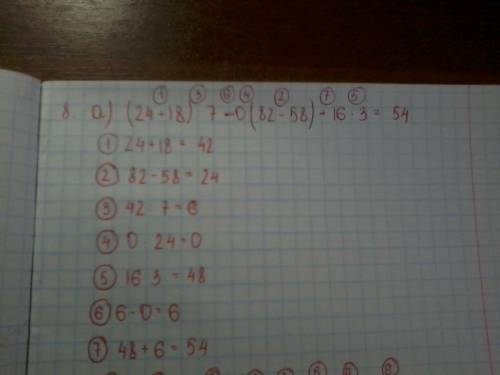 ① ③ ⑥ ④ ② ⑦ ⑤
8. а) (24+18) 7 - 0 (82-58) + 16 · 3 = 54
① 24+18 = 42
② 82-58 = 24
③ 42 7 = 6
④ 0 · 24 = 0
⑤ 16 3 = 48
⑥ 6-0 = 6
⑦ 48+6 = 54